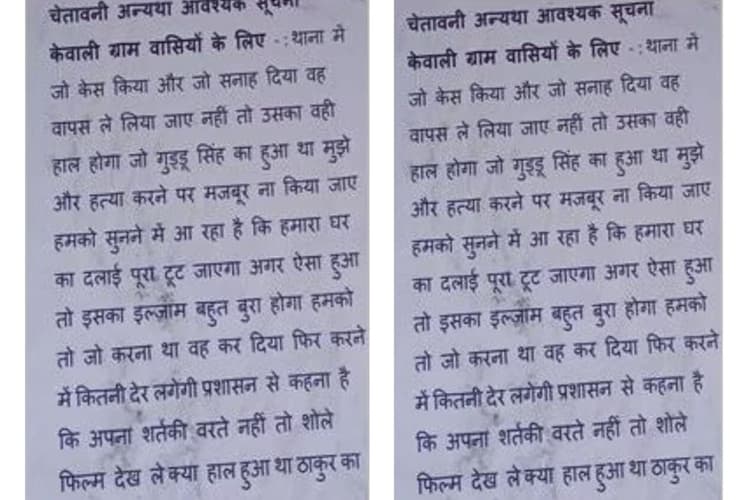 चेतावनी अन्यथा आवश्यक सूचना
केवाली ग्राम वासियों के लिए -:थाना मे
जो केस किया और जो सनाह दिया वह
वापस ले लिया जाए नहीं तो उसका वही
हाल होगा जो गुड्डू सिंह का हुआ था मुझे
और हत्या करने पर मजबूर ना किया जाए
हमको सुनने में आ रहा है कि हमारा घर
का दलाई पूरा टूट जाएगा अगर ऐसा हुआ
तो इसका इल्ज़ाम बहुत बुरा होगा हमको
तो जो करना था वह कर दिया फिर करने
में कितनी देर लगेगी प्रशासन से कहना है
कि अपना शर्तकी वरते नहीं तो शोले
फिल्म देख ले क्या हाल हुआ था ठाकुर का
चेतावनी अन्यथा आवश्यक सूचना
केवाली ग्राम वासियों के लिए -:थाना मे
जो केस किया और जो सनाह दिया वह
वापस ले लिया जाए नहीं तो उसका वही
हाल होगा जो गुड्डू सिंह का हुआ था मुझे
और हत्या करने पर मजबूर ना किया जाए
हमको सुनने में आ रहा है कि हमारा घर
का दलाई पूरा टूट जाएगा अगर ऐसा हुआ
तो इसका इल्ज़ाम बहुत बुरा होगा हमको
तो जो करना था वह कर दिया फिर करने
में कितनी देर लगेगी प्रशासन से कहना है
कि अपना शर्तकी वरते नहीं तो शोले
फिल्म देख ले क्या हाल हुआ था ठाकुर का